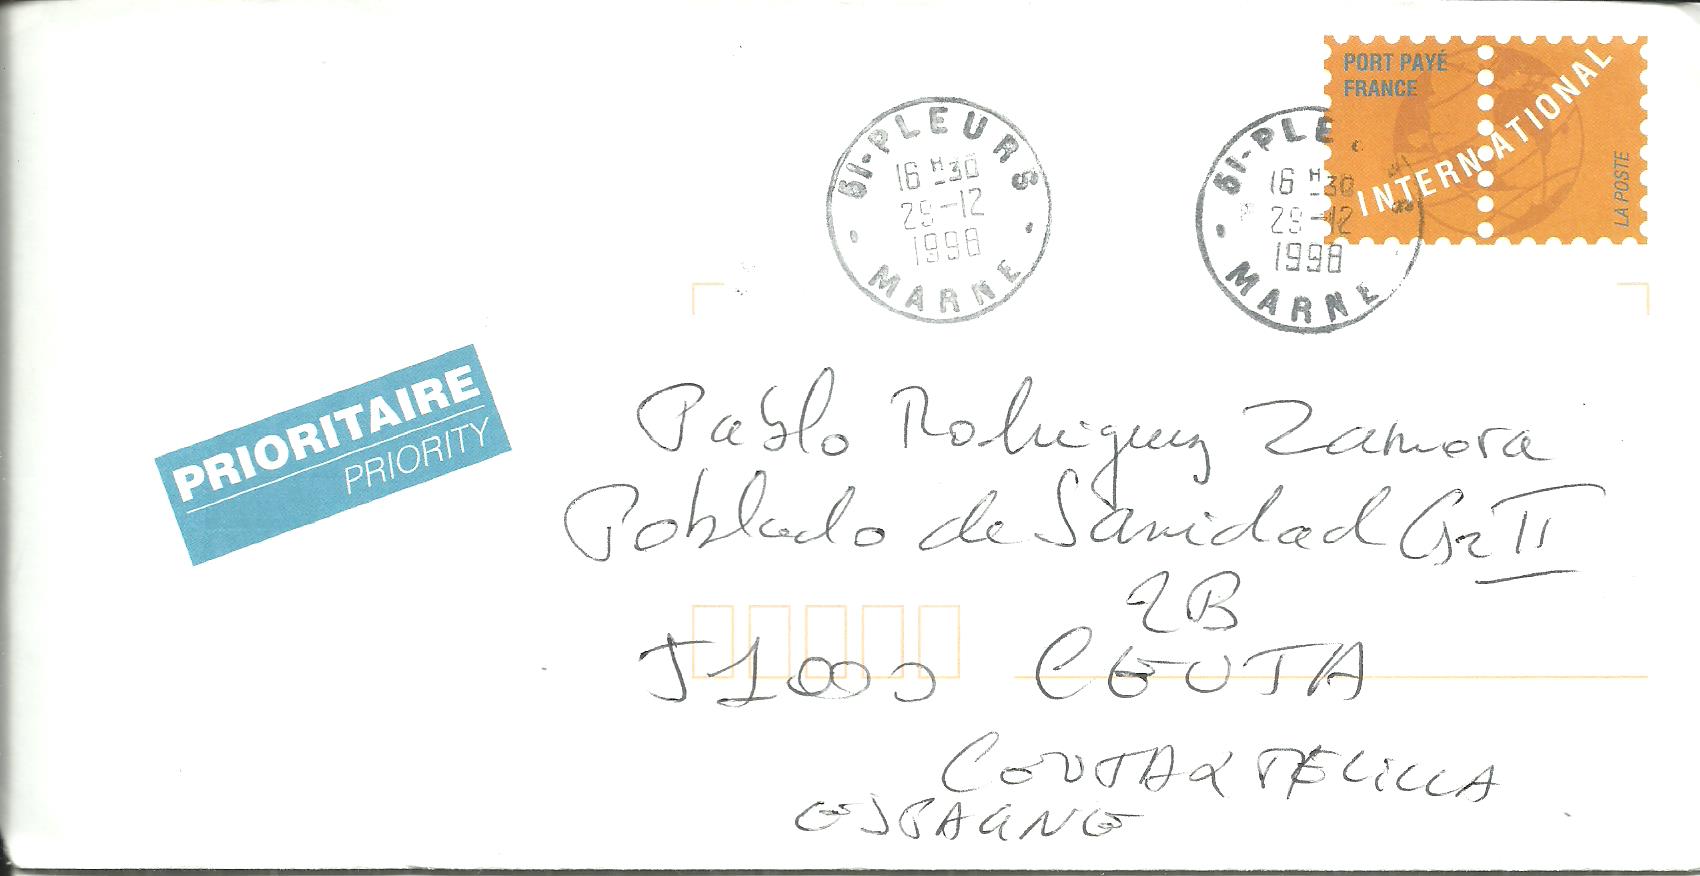 PORT PAYÉ
FRANCE
INTERNATIONAL
LA POSTE
51-PLEURS
16 H 30
29-12
1998
MARNE
51-PLE
16 H 30
29-12
1998
MARNE
PRIORITAIRE
PRIORITY
Pablo Rodriguez Zamora
Poblado de Sanidad Gr II
2B
51000 CEUTA
CEUTA & MELILLA
ESPAGNE